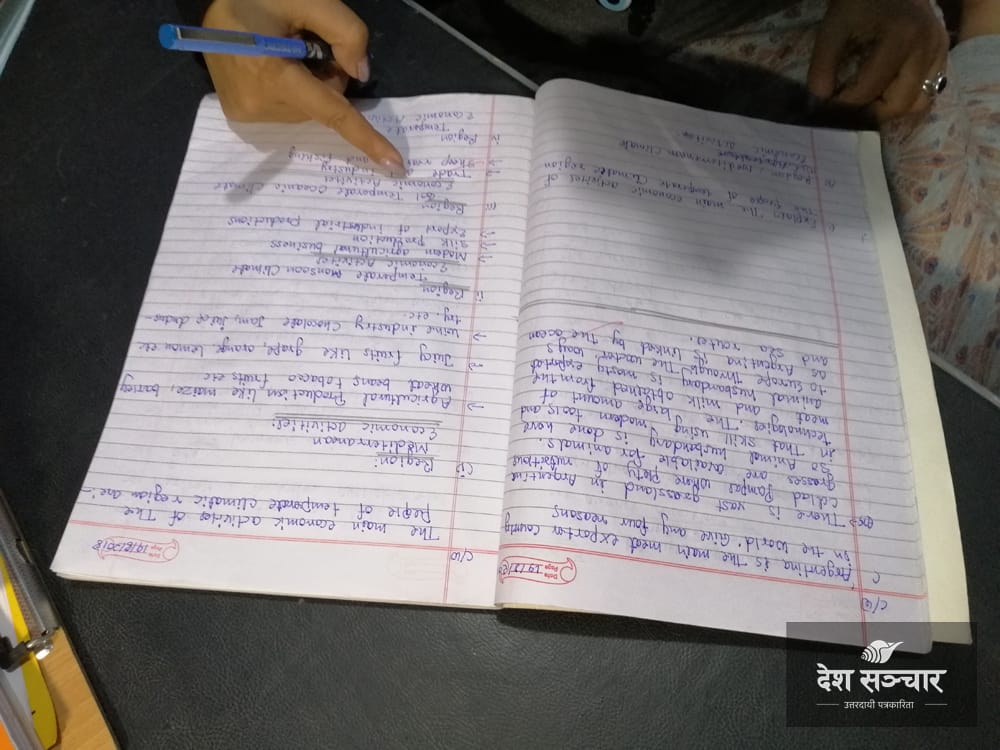 Date
Page
c/Q
Argentina is the main meat exporter country
in the world. Give any four reasons
There is vast grassland in Argentina
Called Pampas where plety of nutritious
grasses are available for animals.
So Animal husbandary is done here
in That skill using modern tools and
technologies. The large amount of
meat and milk obtained from the
animal husbandary is mostly exported
to Europe Through the water ways
as Argentina is linked by the ocean
and sea routes.
Explain The main economic activities of
the people of temperate climatic region
Region: Mediterranean Climate
Economic activities
Date
Page
The main economic activities of The
People of temperate climatic region are:-
(i) Region:
Mediterranean
Economic activities:
→ Agricultural Production like maize barley
wheat beans tobacco fruits etc
→ Juicy fruits like grape, orange lemon etc
→ wine industry Chocolate Jam, Juice indus-
try. etc.
ii Region
Temperate monsoon Climate
Economic Activities
→ Modern agricultural business
→ Silk production
→ Export of industrial productions
iii Region
Temperate Oceanic Climate
Economic Activities
→ Trade industry
→ Sheep rear and fishing
iv Region
Temperate
Economic Activi
देश सञ्चार
उत्तरदायी पत्रकारिता